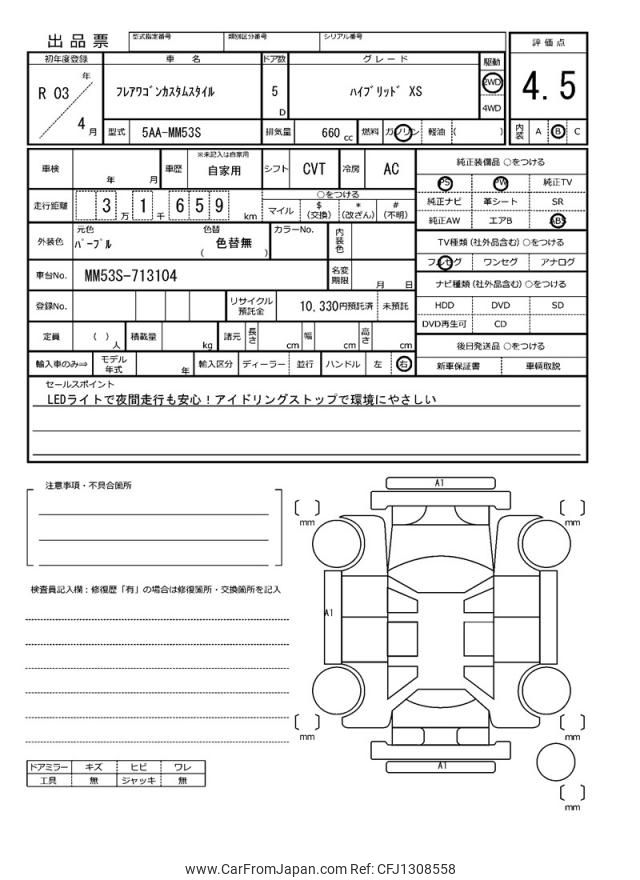 出品票 型式指定番号 類別区分番号 シリアル番号
評価点
4.5
内装 A B C
初年度登録 車名 ドア数 グレード 駆動
R 03 年 4 月
フレアワゴンカスタムスタイル 5 D ハイブリッド XS 2WD
4WD
型式 5AA-MM53S 排気量 660 cc 燃料 ガソリン 軽油 ( )
車検 年 月 車歴 ※未記入は自家用 自家用 シフト CVT 冷房 AC
走行距離 3 万 1 千 6 5 9 km
○をつける
マイル $ (交換) * (改ざん) # (不明)
外装色 元色 パープル 色替 ( 色替無 ) カラーNo. 内装色
車台No. MM53S-713104 名変期限 月 日
登録No. リサイクル預託金 10,330円預託済 未預託
定員 ( ) 人 積載量 kg 諸元 長さ cm 幅 cm 高さ cm
輸入車のみ⇒ モデル年式 年 輸入区分 ディーラー 並行 ハンドル 左 右
純正装備品 ○をつける
PS PW 純正TV
純正ナビ 革シート SR
純正AW エアB ABS
TV種類 (社外品含む) ○をつける
フルセグ ワンセグ アナログ
ナビ種類 (社外品含む) ○をつける
HDD DVD SD
DVD再生可 CD
後日発送品 ○をつける
新車保証書 車輌取説
セールスポイント
LEDライトで夜間走行も安心！アイドリングストップで環境にやさしい
注意事項・不具合箇所
検査員記入欄：修復歴「有」の場合は修復箇所・交換箇所を記入
A1
mm
mm
A1
mm
mm
A1
mm
ドアミラー キズ ヒビ ワレ
工具 無 ジャッキ 無
www.CarFromJapan.com Ref: CFJ1308558